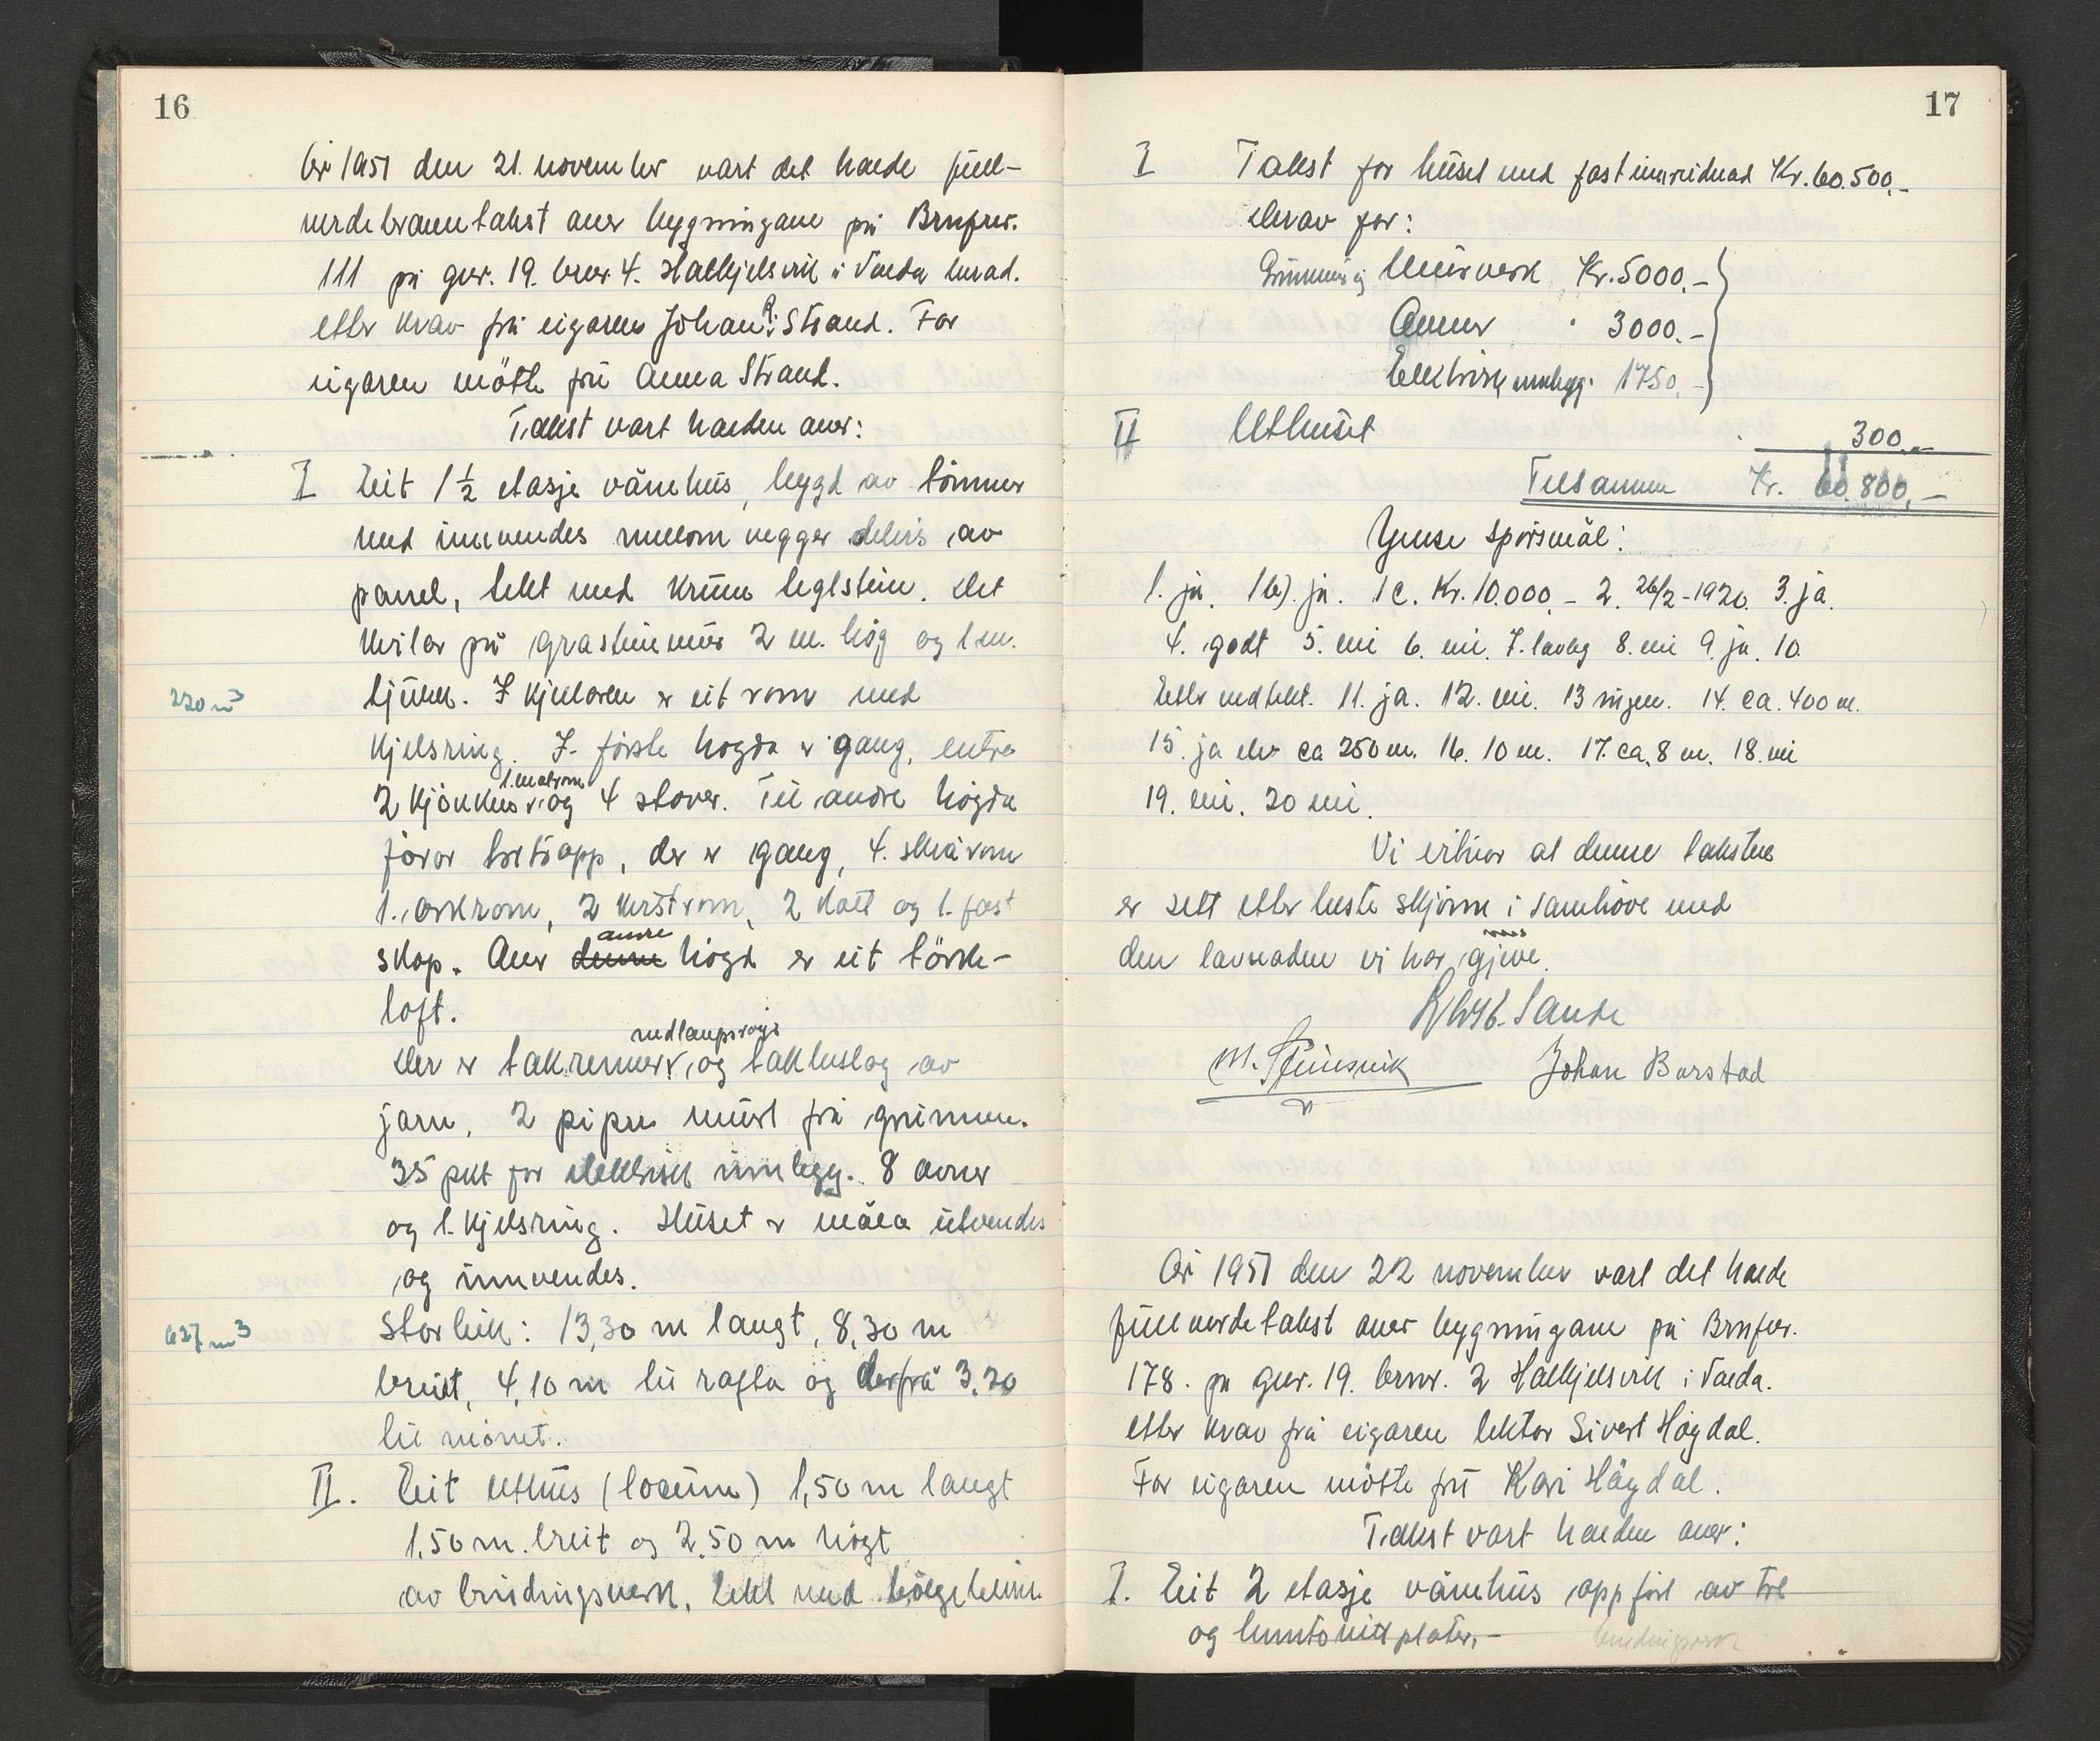 16
År 1951 den 21. november vart det halde full-
verdebranntakst over bygningane på Brnfnr.
111 på gnr. 19. bnr. 4. Hallkjelsvik i Volda herad.
etter krav frå eigaren Johan P. Strand. For
eigaren møtte fru Anna Strand.
Takst vart halden over:
I Eit 1½ etasje vånehus, bygd av tømmer
med innvendes mellom vegger delvis av
panel, tekt med krum teglstein. Det
kviler på gråsteinmur 2 m. høg og 1 m.
220 m³
tjukk. I kjellaren er eit rom med
kjelsring. I første høgda er gang, entre
1. matrom
2 kjøkken og 4 stover. Til andre høgda
fører tretrapp, der er gang, 4. skrårom
1. arkrom, 2 kvistrom, 2 kott og 1. fast
andre
skap. Over denne høgd er eit tørke-
loft.
nedlaupsrøyr
Der er takrenner og takbeslag av
jarn, 2 pipur murt frå grunnen.
35 pkt for elektrisk innlegg. 8 ovner
og 1. kjelsring. Huset er måla utvendes
og innvendes.
637 m³
Storleik: 13,30 m langt, 8,30 m
breitt, 4,10 m til rafta og derfrå 3.20
til mønet.
II. Eit uthus (locum) 1,50 m langt
1,50 m. breit og 2.50 m høgt
av bindingsverk, tekt med bølgeblikk.
17
I Takst for huset med fast innreidnad Kr. 60.500,-
Derav for:
Grunnmur og Murverk Kr. 5000.-
Omner " 3000.-
Elektrisk innlegg. 1750.-
II Uthuset " 300.-
Tilsamen Kr. 60.800,-
Ymse spørsmål:
1. ja. 1b). ja. 1c. Kr. 10.000.- 2. 26/2-1920. 3. ja.
4. godt 5. nei 6. nei. 7. lovleg 8. nei 9. ja. 10.
Etter vedtekt. 11. ja. 12. nei. 13 ingen. 14. ca. 400 m.
15. ja elv ca 250 m. 16. 10 m. 17. ca. 8 m. 18. nei
19. nei. 20 nei.
Vi erklærer at denne taksten
er sett etter beste skjønn i samhøve med
den lovnaden vi har gjeve.
Sande
M. Johan Barstad
År 1951 den 22 november vart det halde
fullverdetakst over bygningane på Brnfnr.
178. på gnr. 19. brnr. 2 Hallkjelsvik i Volda.
etter krav frå eigaren lektor Sivert Høgdal.
For eigaren møtte fru Kari Høydal.
Takst vart halden over:
I. Eit 2 etasje vånehus oppført av tre
og huntonitt plater.- bindingsverk